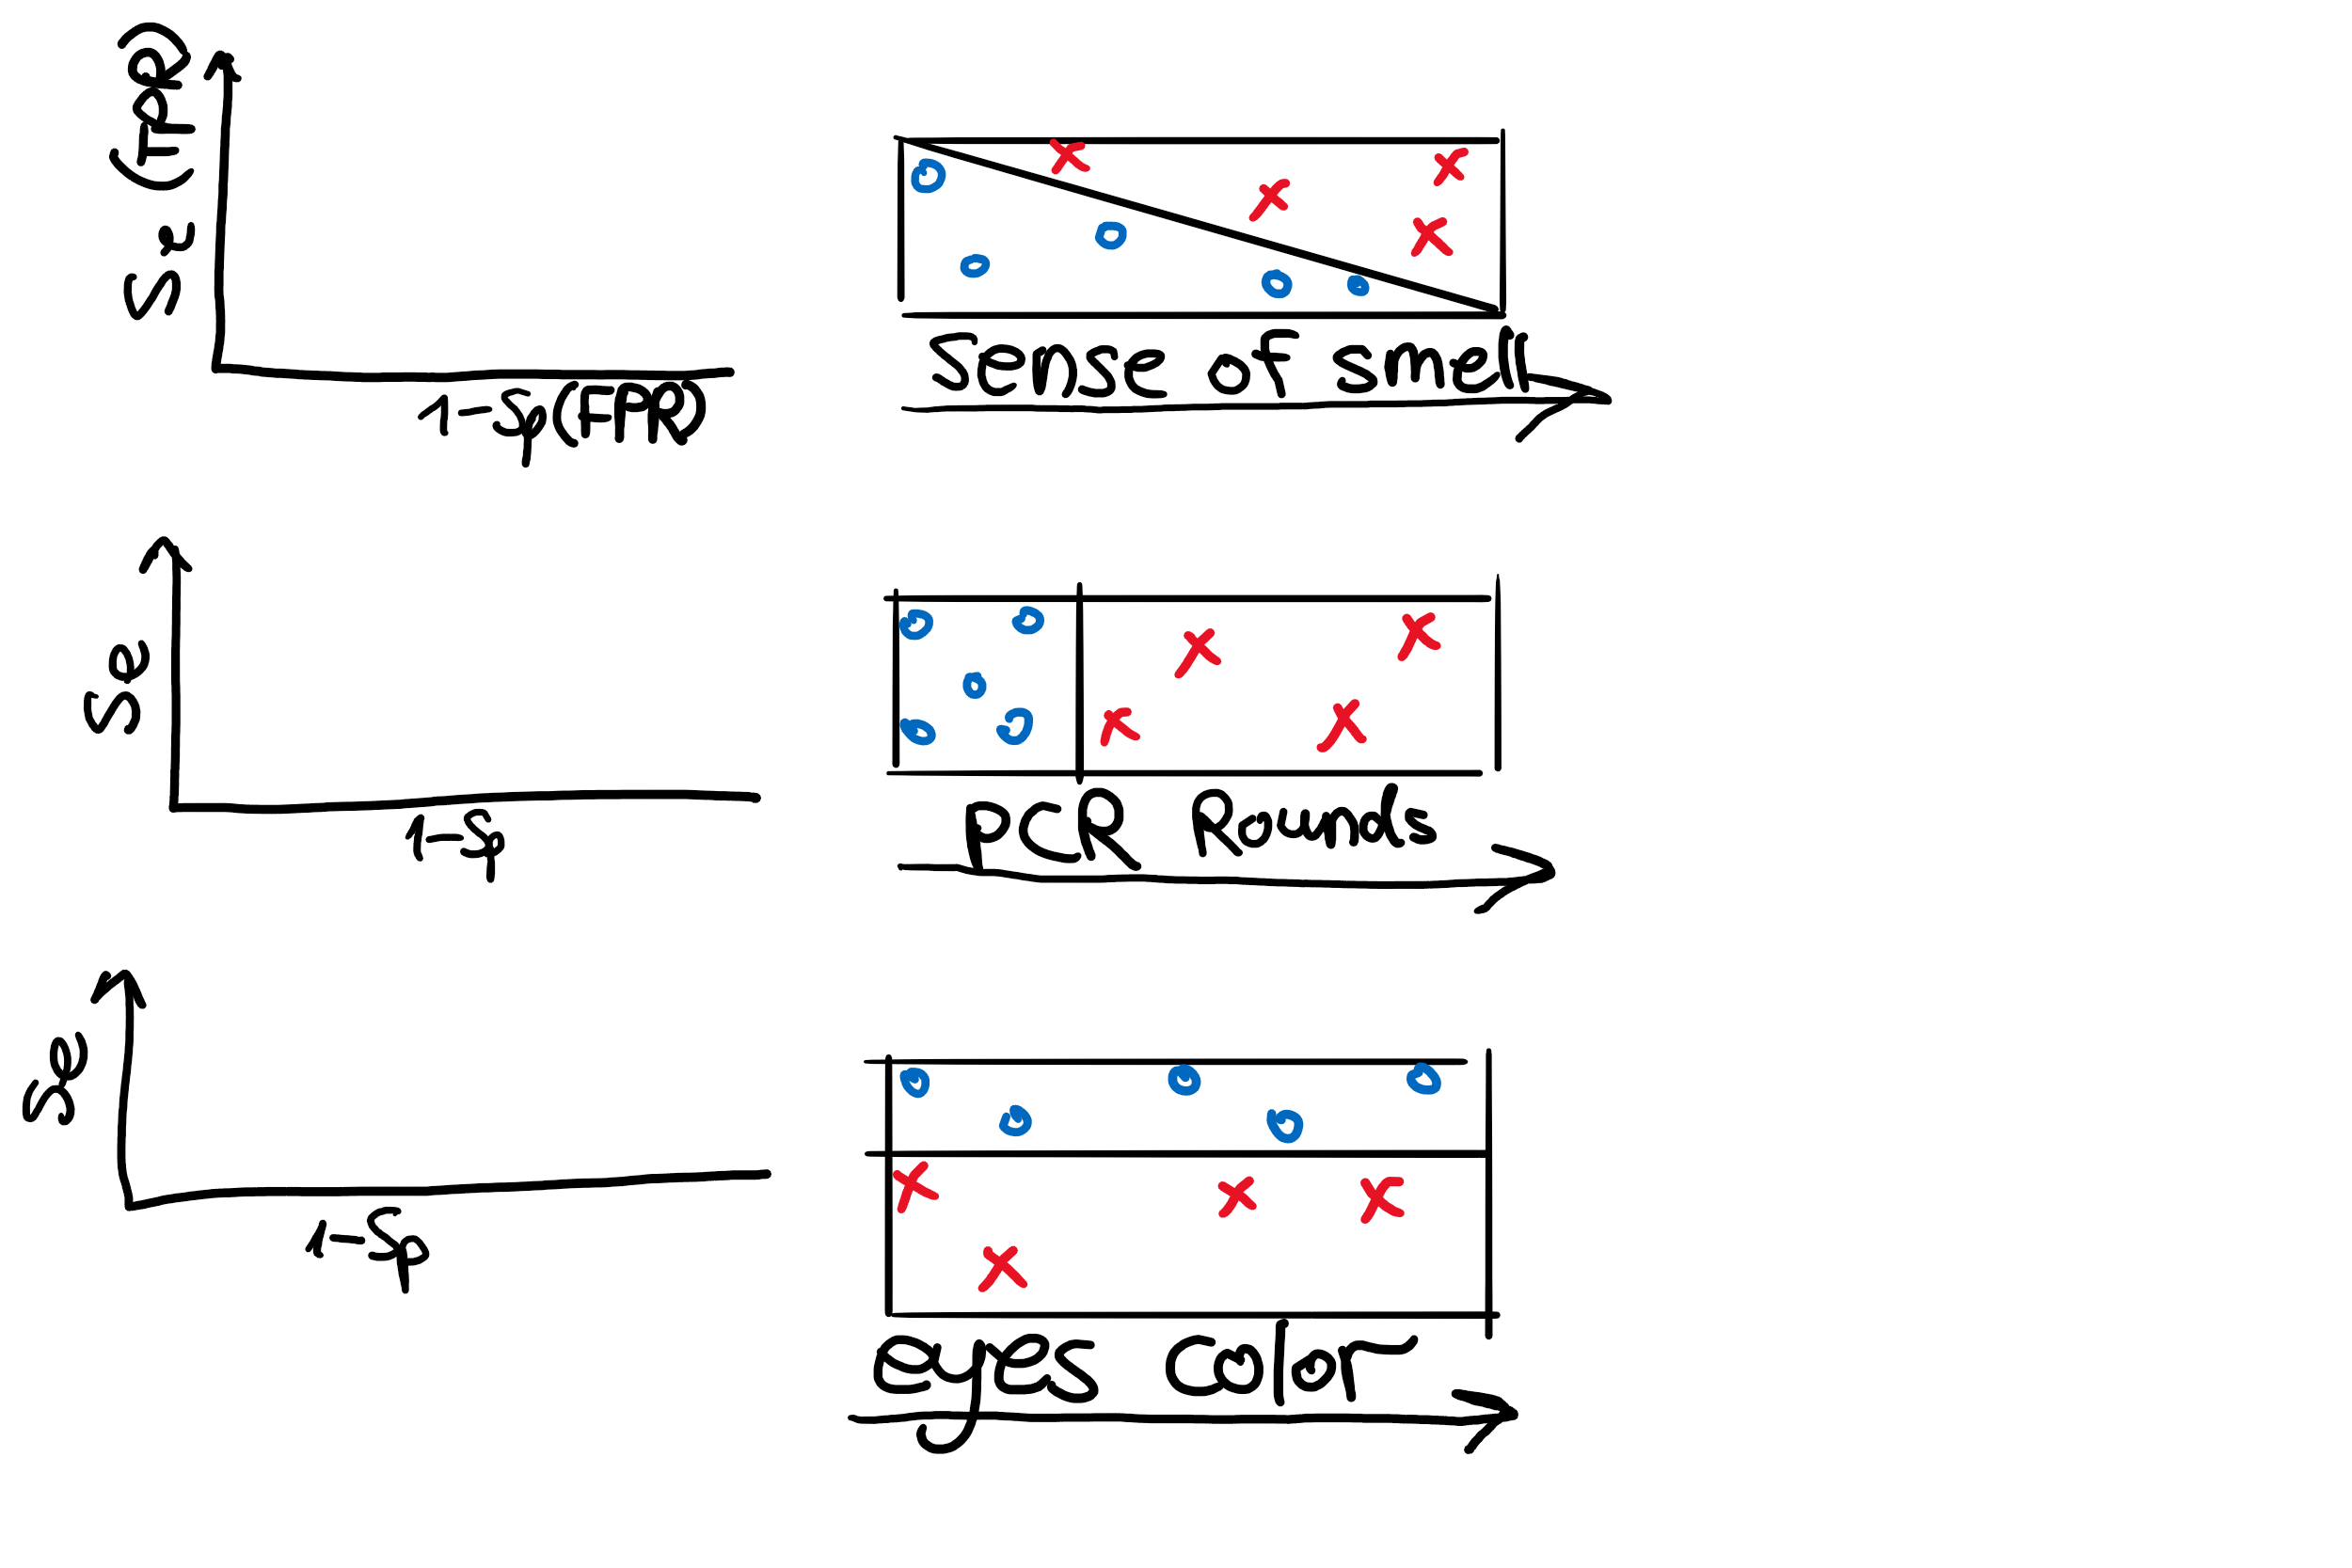 Se (TPR)
1-Sp(FPR)
Sense of smell
Se
1-Sp
PCR Rounds
Se
1-Sp
eyes color